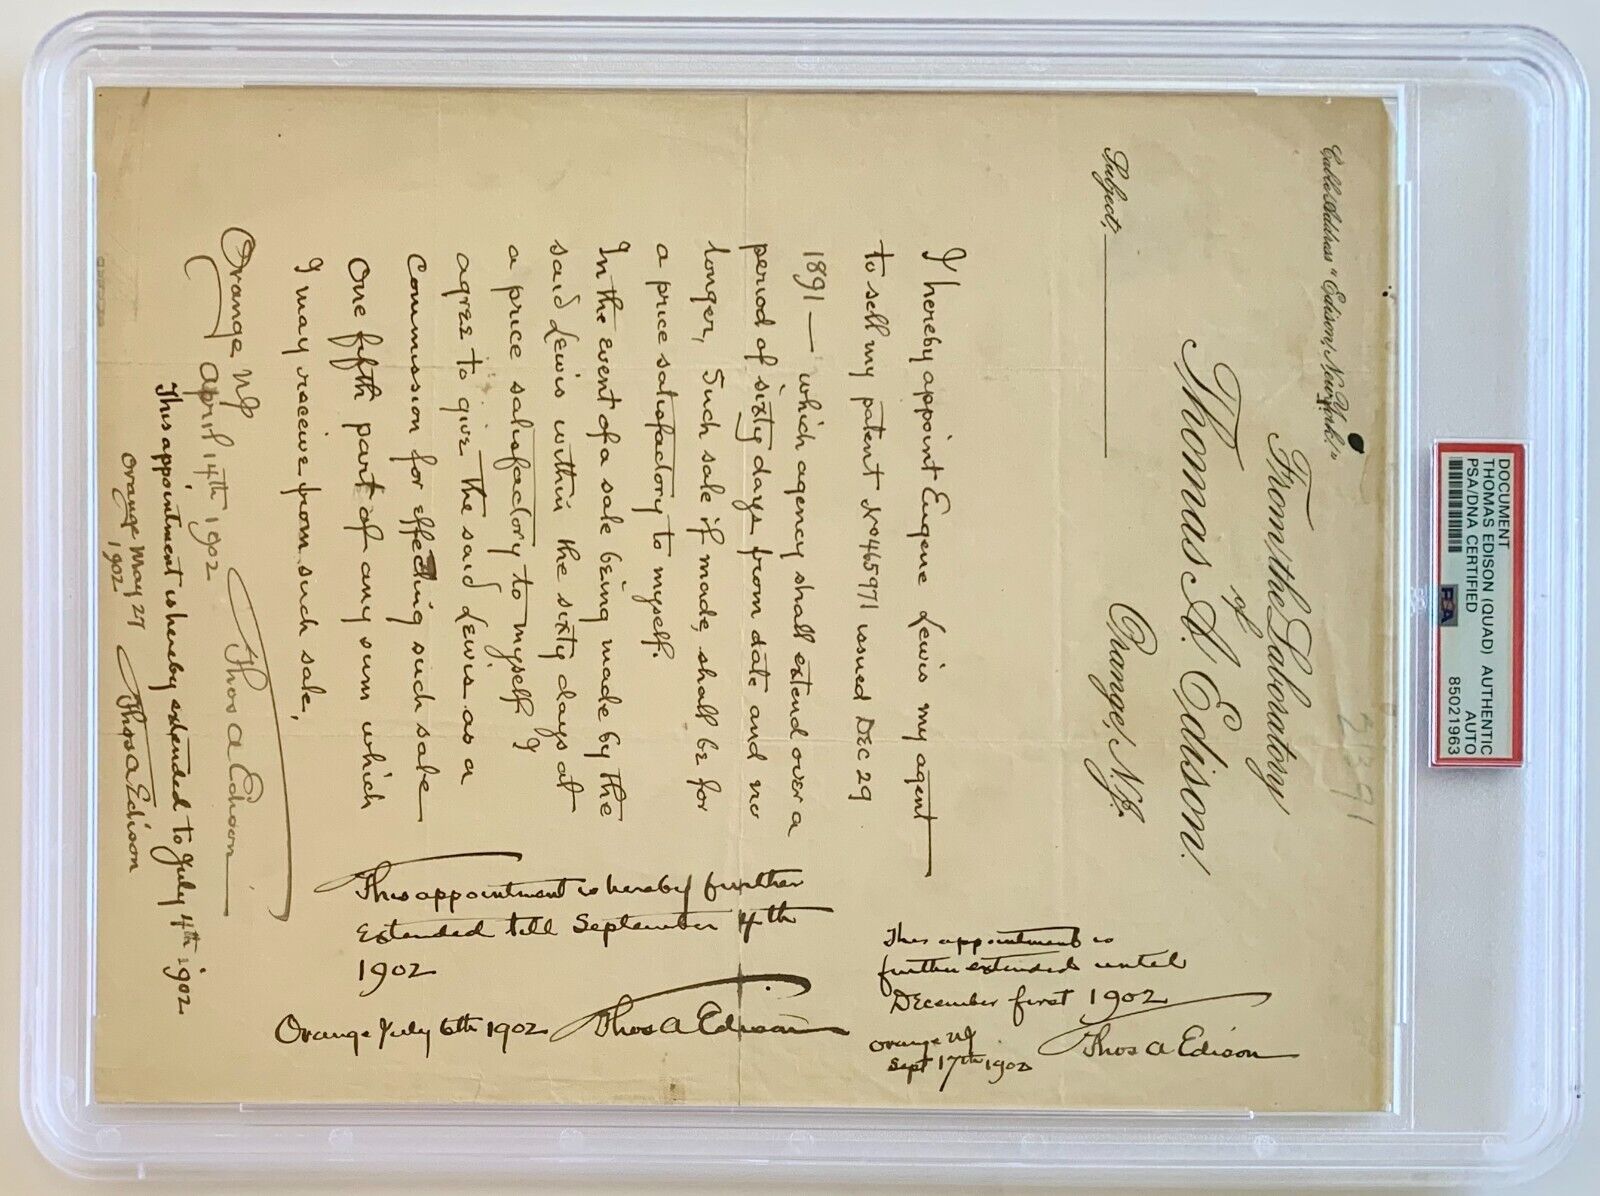 DOCUMENT
THOMAS EDISON (QUAD) AUTHENTIC
AUTO
PSA/DNA CERTIFIED
85021963
PSA
21391
Cable Address "Edison, New York."
From the Laboratory
of
Thomas A. Edison.
Orange, N.J.
Subject;
I hereby appoint Eugene Lewis my agent
to sell my patent No 465971 issued Dec 29
1891 — which agency shall extend over a
period of sixty days from date and no
longer, Such sale if made, shall be for
a price satisfactory to myself.
In the event of a sale being made by the
said Lewis within the sixty days at
a price satisfactory to myself I
agree to give the said Lewis as a
Commission for effecting such sale
One fifth part of any sum which
I may receive from such sale,
Orange NJ
April 14th 1902
Thos A Edison
This appointment is hereby extended to July 4th 1902
Orange May 27
1902
Thos A Edison
This appointment is hereby further
Extended till September 4th
1902
Orange July 6th 1902 Thos A Edison
This appointment is
further extended until
December first 1902
Orange NJ
Sept 17th 1902
Thos A Edison